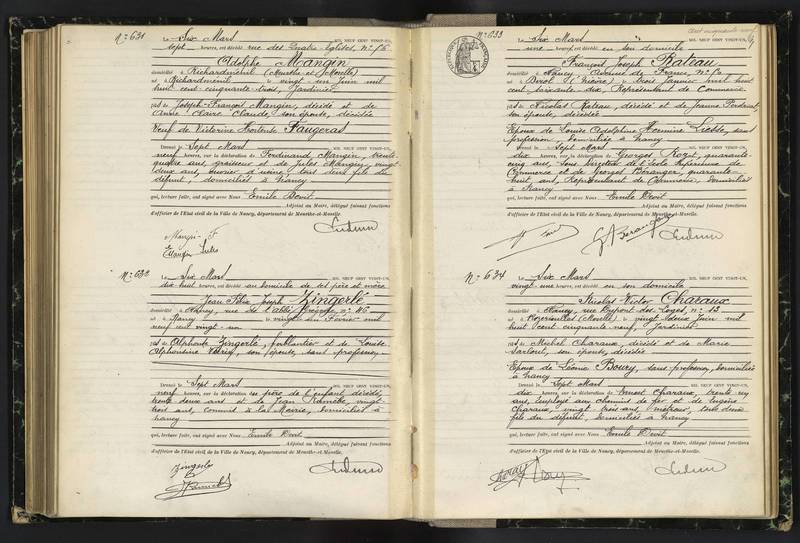 N° 631
Le Six Mars MIL NEUF CENT VINGT-UN,
sept heures, est décédé rue des Quatre Eglises, N° 56
Adolphe Mangin
domicilié à Richardménil (Meurthe et Moselle)
né à Richardménil le vingt un Juin mil
huit cent cinquante trois, Jardinier
fils de Joseph-François Mangin, décédé et de
Anne Claire Claude, son épouse, décédée
Veuf de Victorine Hortense Faugeras
Dressé le Sept Mars
neuf heures, sur la déclaration de Ferdinand Mangin, trente
quatre ans, graisseur et de Jules Mangin, vingt
deux ans, ouvrier d'usine, tous deux fils du
défunt, domiciliés à Nancy
qui, lecture faite, ont signé avec Nous Emile Devit
Adjoint au Maire, délégué faisant fonctions
d'officier de l'Etat civil de la Ville de Nancy, département de Meurthe-et-Moselle.
Mangin F
Mangin Jules
N° 632
Le Six Mars MIL NEUF CENT VINGT-UN,
dix huit heures, est décédé au domicile de ses père et mère
Jean Félix Joseph Zingerlé
domicilié à Nancy, rue de l'abbé Grégoire, N° 46
né à Nancy le vingt un Février mil
neuf cent vingt un
fils de Alphonse Zingerlé, ferblantier et de Louise
Alphonsine, son épouse, sans profession
Dressé le Sept Mars
neuf heures, sur la déclaration du père de l'enfant décédé,
trente deux ans et de Jean, vingt
trois ans, commis à la Mairie, domiciliés à
Nancy
qui, lecture faite, ont signé avec Nous Emile Devit
Adjoint au Maire, délégué faisant fonctions
d'officier de l'Etat civil de la Ville de Nancy, département de Meurthe-et-Moselle.
Zingerlé
N° 633
Le Six Mars MIL NEUF CENT VINGT-UN,
une heure, est décédé en son domicile
François Joseph Rateau
domicilié à Nancy Avenue de France, N°
né à Birol (Nièvre) le trois Janvier mil huit
cent soixante-dix, Représentant de Commerce
fils de Nicolas Rateau, décédé et de Jeanne
son épouse, décédée
Epoux de Louise Adolphine Hermine, sans
profession, domiciliée à Nancy
Dressé le Sept Mars
dix heures, sur la déclaration de Georges, quarante-
cinq ans, Sous Directeur de l'école Supérieure de
Commerce et de Georges Béranger, quarante-
huit ans, Représentant de Commerce, domiciliés
à Nancy
qui, lecture faite, ont signé avec Nous Emile Devit
Adjoint au Maire, délégué faisant fonctions
d'officier de l'Etat civil de la Ville de Nancy, département de Meurthe-et-Moselle.
G Béranger
N° 634
Le Six Mars MIL NEUF CENT VINGT-UN,
vingt une heures, est décédé en son domicile
Nicolas Victor Charaux
domicilié à Nancy, rue Dupont des Loges, N° 13
né à Rozérieulles (Moselle) le vingt deux Juin mil
huit cent cinquante neuf, Jardinier
fils de Michel Charaux, décédé et de Marie
son épouse, décédée
Epoux de Léonie Boury, sans profession, domiciliée
à Nancy
Dressé le Sept Mars
dix heures, sur la déclaration de Ernest Charaux, trente un
ans, employé au chemins de fer et de Eugène
Charaux, vingt trois ans, métreur, tous deux
fils du défunt, domiciliés à Nancy
qui, lecture faite, ont signé avec Nous Emile Devit
Adjoint au Maire, délégué faisant fonctions
d'officier de l'Etat civil de la Ville de Nancy, département de Meurthe-et-Moselle.